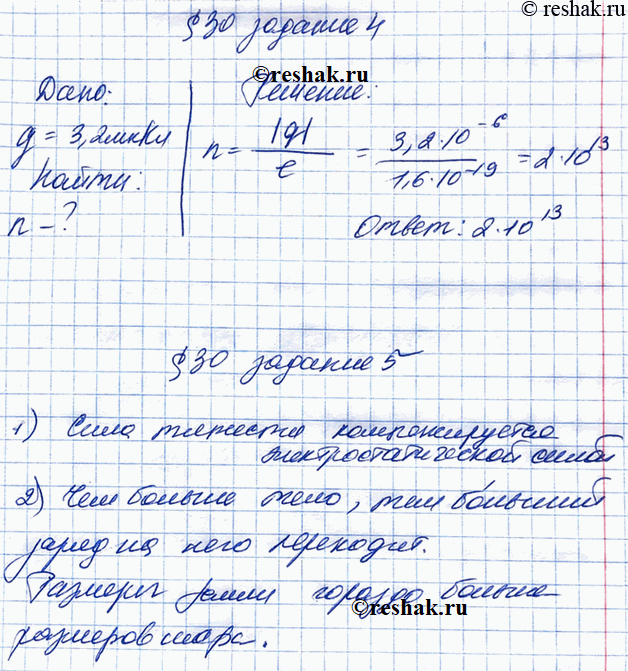 ©reshak.ru
§30 задание 4
©reshak.ru
Дано:
Решение:
q = 3,2мкКл
n = |q| / e = 3,2·10⁻⁶ / 1,6·10⁻¹⁹ = 2·10¹³
Найти:
n - ?
Ответ: 2·10¹³
§30 задание 5
1) Сила тяжести компенсируется
электростатической силой
2) Чем больше тело, тем бо́льший
заряд на него переходит.
Размеры земли гораздо больше
©reshak.ru
размеров шара.